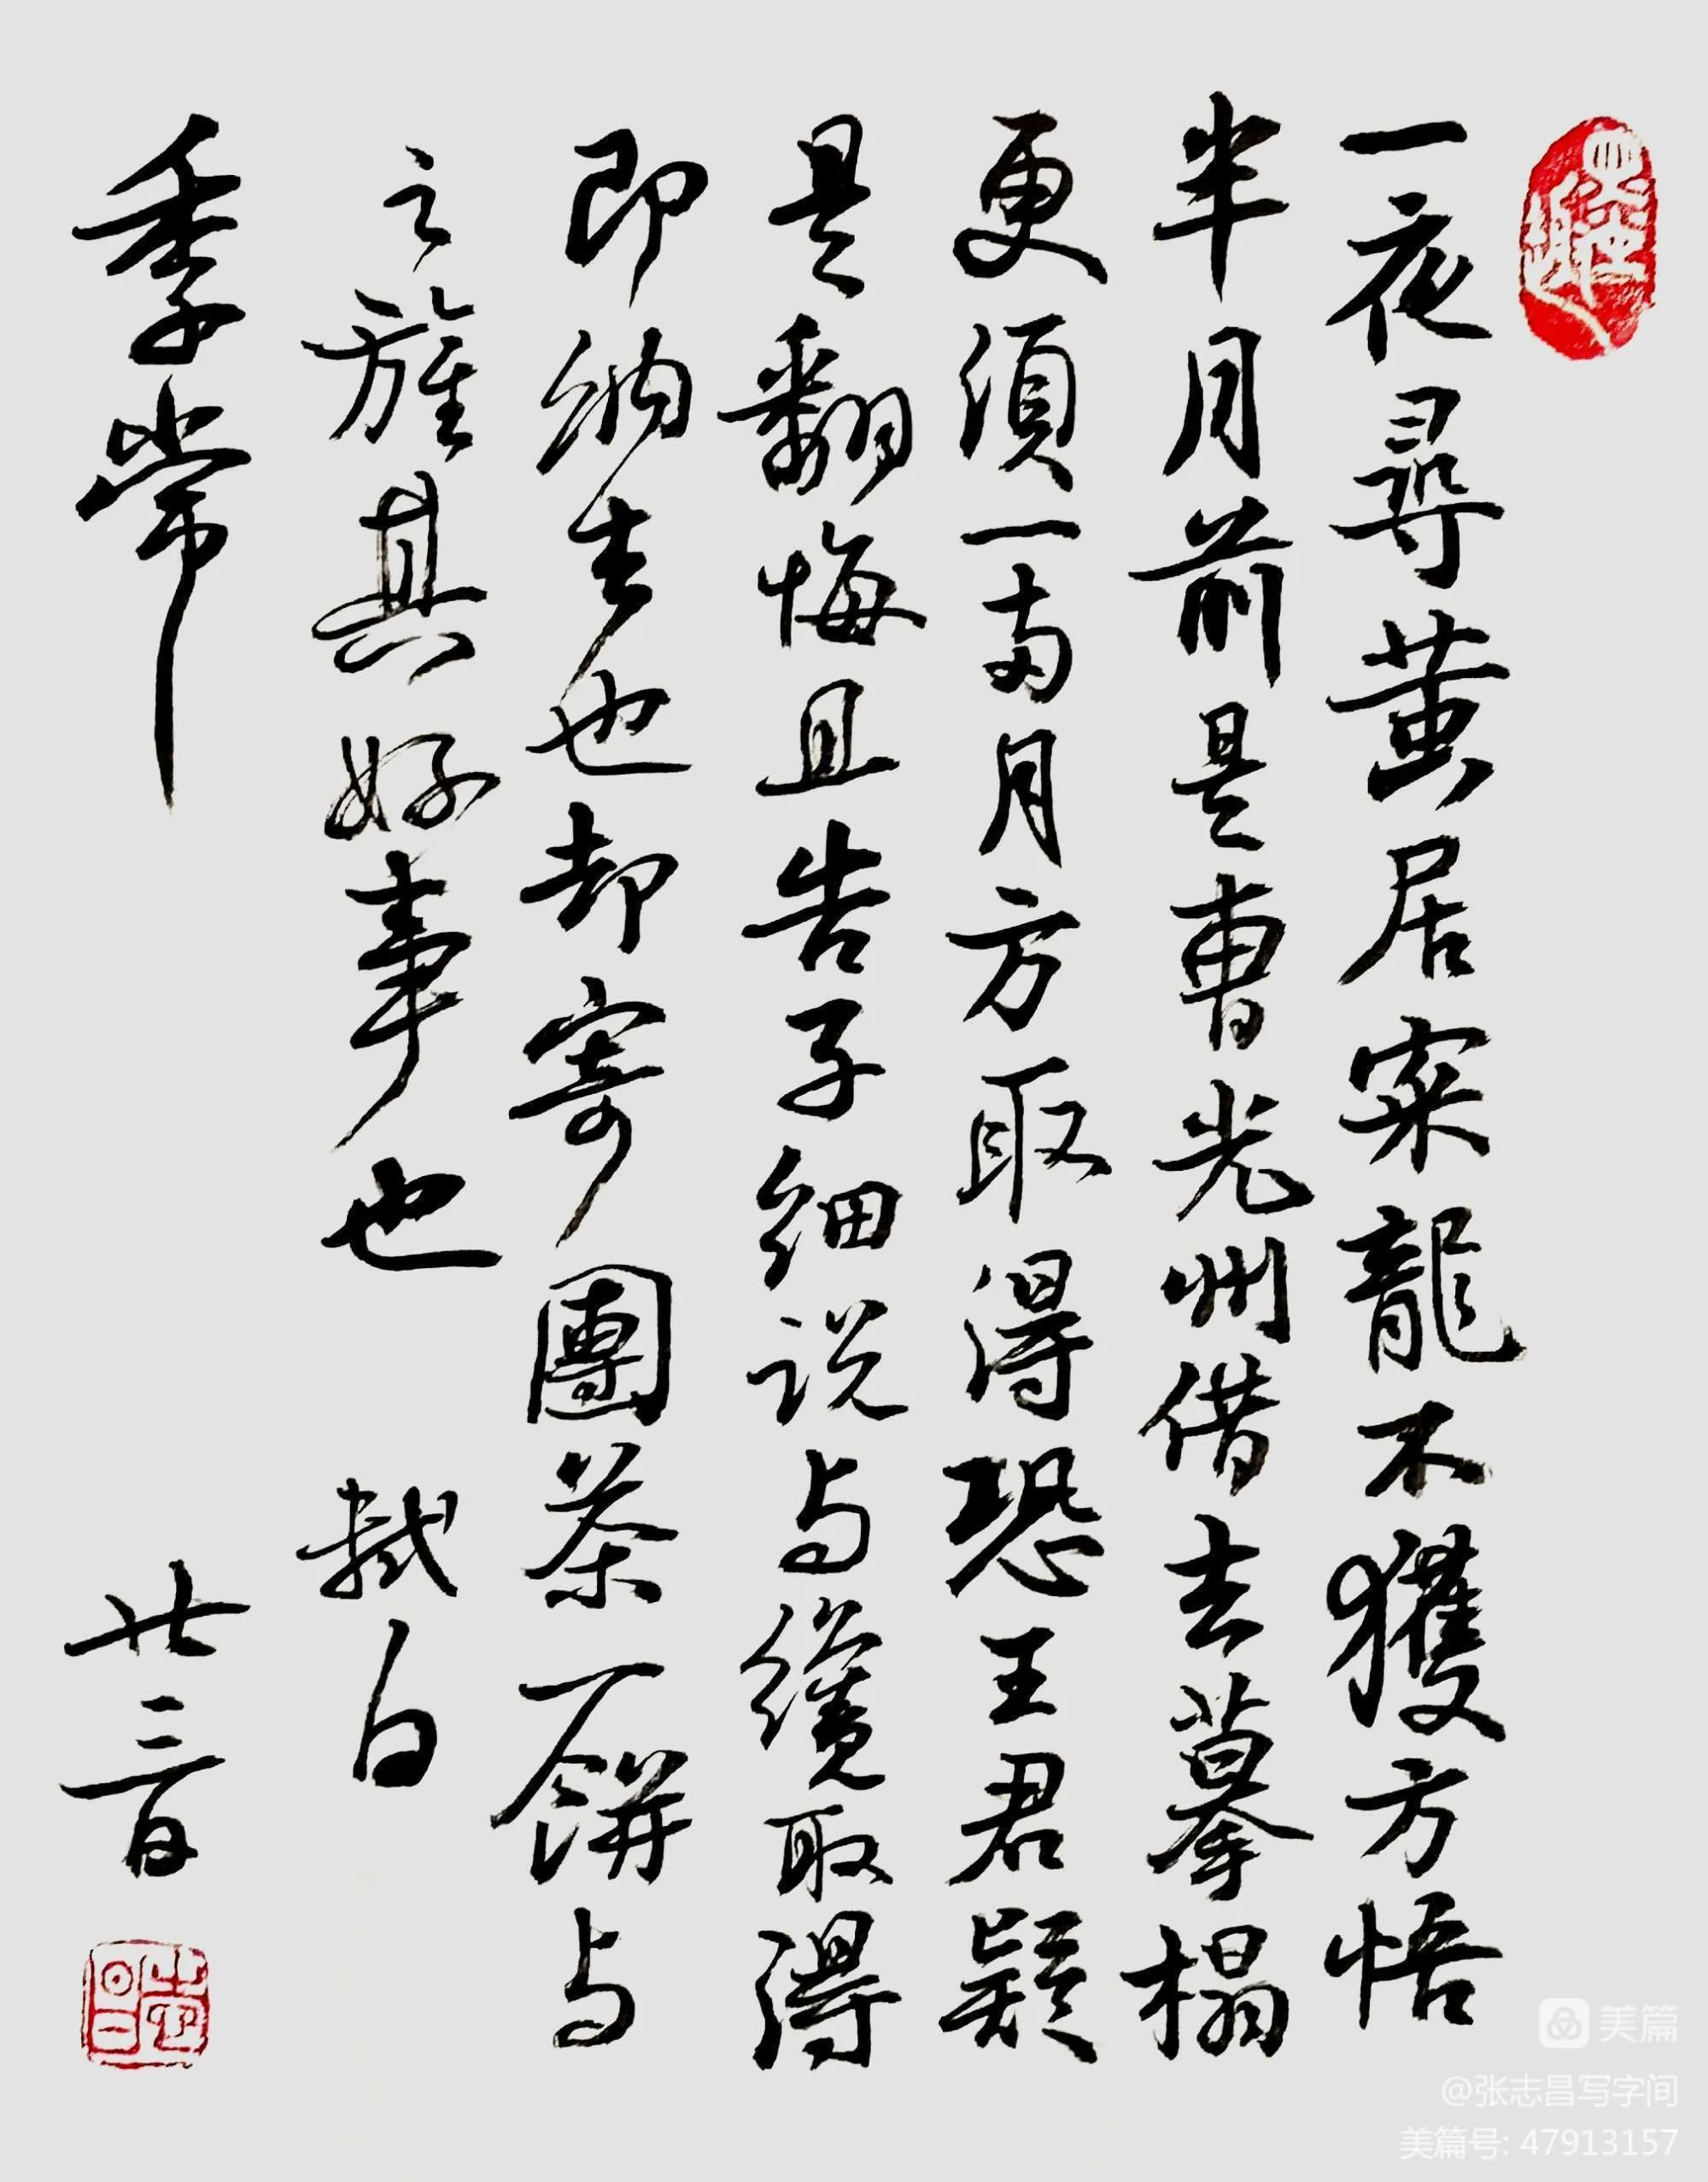 一夜尋黄居寀龍不獲方悟
半月前是曹光州借去摹榻
更須一两月方取得恐王君疑
是翻悔且告子細説与纔取得
即納去也却寄團茶一餅与
之旌其好事也 軾白
季常 廿三日
志昌
美篇
@张志昌写字间
美篇号: 47913157